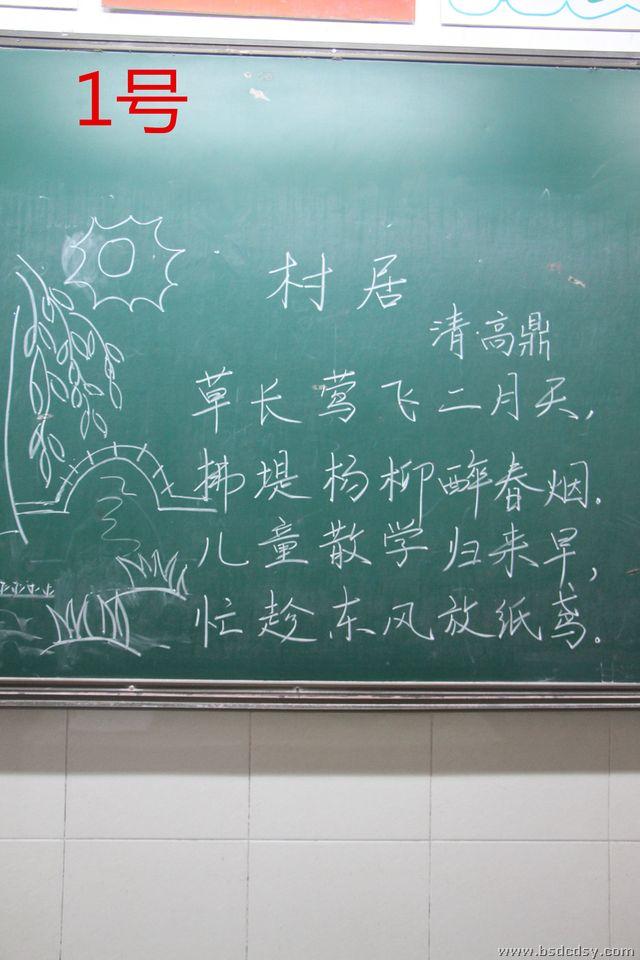 1号
村居
清·高鼎
草长莺飞二月天,
拂堤杨柳醉春烟.
儿童散学归来早,
忙趁东风放纸鸢.
www.bsdcdsy.com